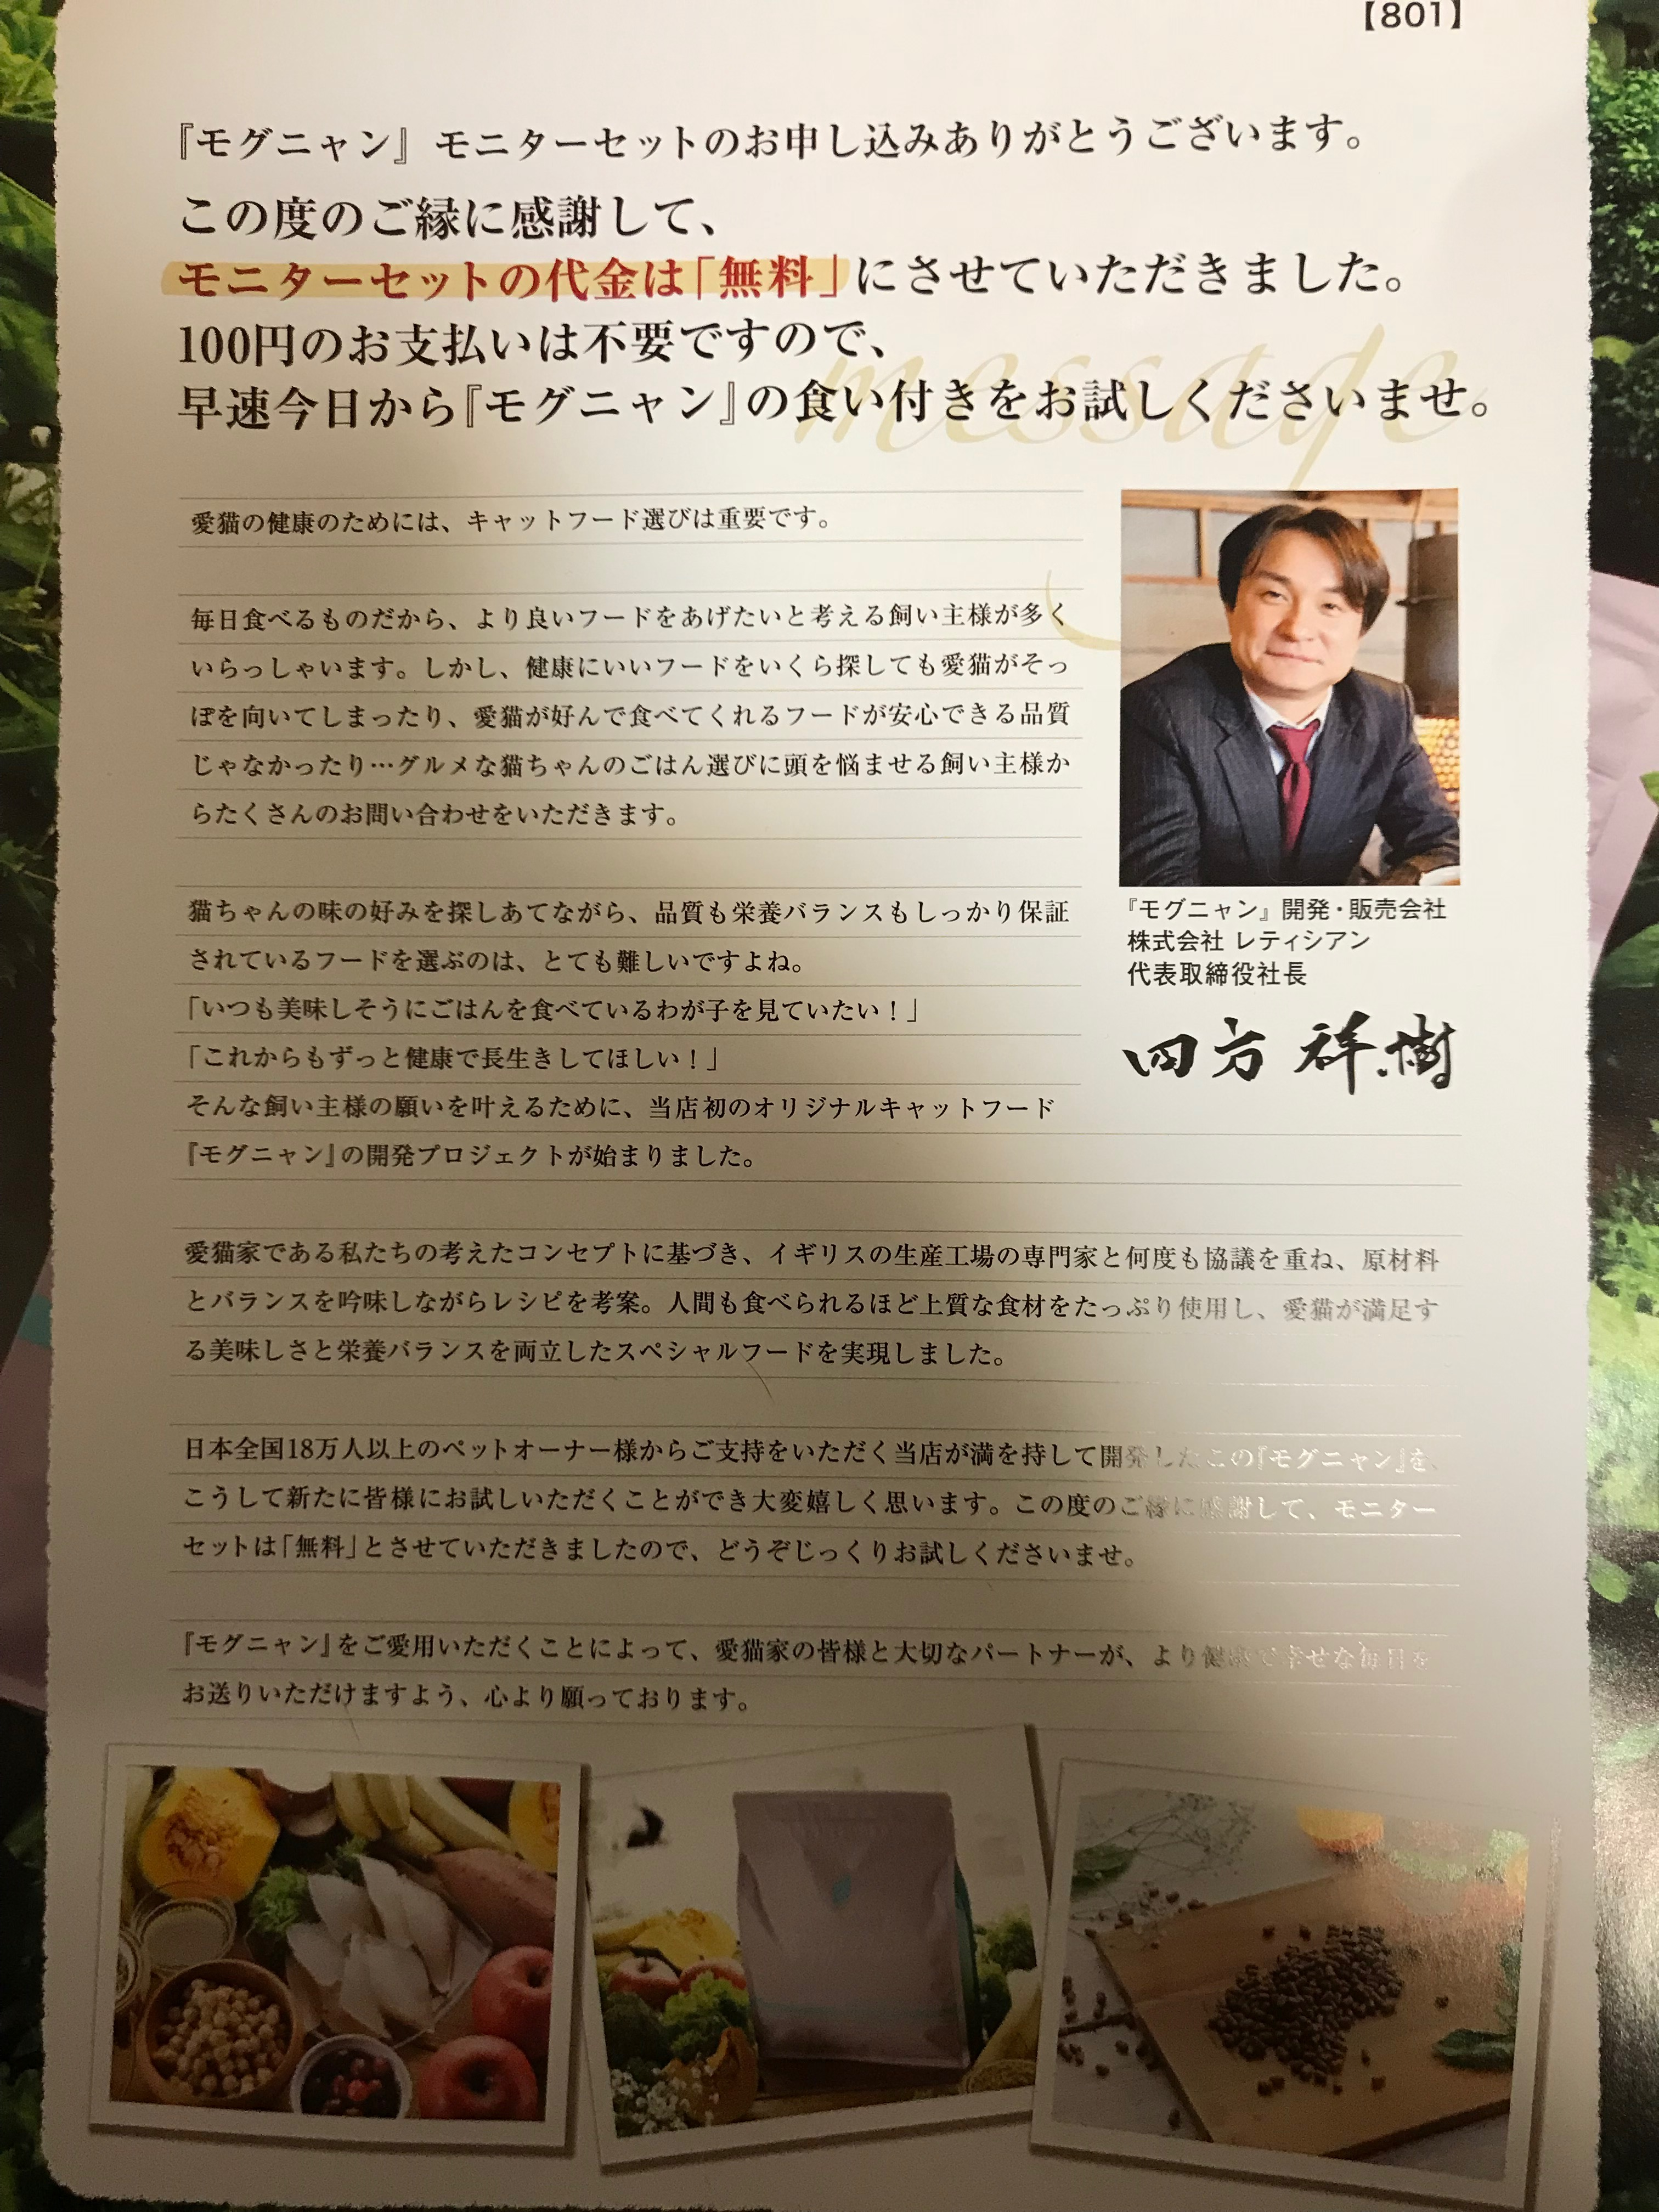 【801】
『モグニャン』モニターセットのお申し込みありがとうございます。
この度のご縁に感謝して、
モニターセットの代金は「無料」にさせていただきました。
100円のお支払いは不要ですので、
早速今日から『モグニャン』の食い付きをお試しくださいませ。
message
愛猫の健康のためには、キャットフード選びは重要です。
毎日食べるものだから、より良いフードをあげたいと考える飼い主様が多く
いらっしゃいます。しかし、健康にいいフードをいくら探しても愛猫がそっ
ぽを向いてしまったり、愛猫が好んで食べてくれるフードが安心できる品質
じゃなかったり…グルメな猫ちゃんのごはん選びに頭を悩ませる飼い主様か
らたくさんのお問い合わせをいただきます。
猫ちゃんの味の好みを探しあてながら、品質も栄養バランスもしっかり保証
されているフードを選ぶのは、とても難しいですよね。
「いつも美味しそうにごはんを食べているわが子を見ていたい！」
「これからもずっと健康で長生きしてほしい！」
そんな飼い主様の願いを叶えるために、当店初のオリジナルキャットフード
『モグニャン』の開発プロジェクトが始まりました。
『モグニャン』開発・販売会社
株式会社 レティシアン
代表取締役社長
四方 祥樹
愛猫家である私たちの考えたコンセプトに基づき、イギリスの生産工場の専門家と何度も協議を重ね、原材料
とバランスを吟味しながらレシピを考案。人間も食べられるほど上質な食材をたっぷり使用し、愛猫が満足す
る美味しさと栄養バランスを両立したスペシャルフードを実現しました。
日本全国18万人以上のペットオーナー様からご支持をいただく当店が満を持して開発したこの『モグニャン』を、
こうして新たに皆様にお試しいただくことができ大変嬉しく思います。この度のご縁に感謝して、モニター
セットは「無料」とさせていただきましたので、どうぞじっくりお試しくださいませ。
『モグニャン』をご愛用いただくことによって、愛猫家の皆様と大切なパートナーが、より健康で幸せな毎日を
お送りいただけますよう、心より願っております。